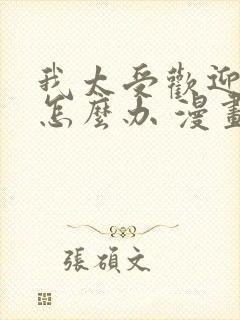 我太受歡迎
怎麼办 漫畫
張碩文